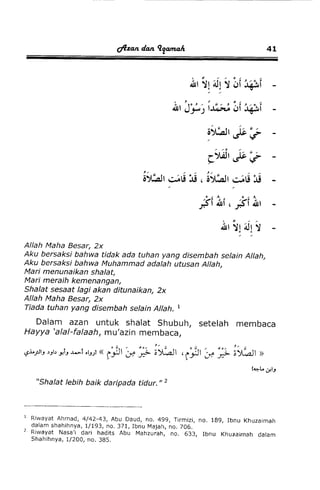 Azan dan Iqamah 41
- أَشْهَدُ أَنْ لَا إِلَهَ إِلَّا اللهُ
- أَشْهَدُ أَنَّ مُحَمَّدًا رَسُوْلُ اللهِ
- حَيَّ عَلَى الصَّلَاةِ
- حَيَّ عَلَى الْفَلَاحِ
- قَدْ قَامَتِ الصَّلَاةُ ، قَدْ قَامَتِ الصَّلَاةُ
- اللهُ أَكْبَرُ ، اللهُ أَكْبَرُ
- لَا إِلَهَ إِلَّا اللهُ
Allah Maha Besar, 2x
Aku bersaksi bahwa tidak ada tuhan yang disembah selain Allah,
Aku bersaksi bahwa Muhammad adalah utusan Allah,
Mari menunaikan shalat,
Mari meraih kemenangan,
Shalat sesaat lagi akan ditunaikan, 2x
Allah Maha Besar, 2x
Tiada tuhan yang disembah selain Allah. 1
Dalam azan untuk shalat Shubuh, setelah membaca
Hayya 'alal-falaah, mu'azin membaca,
« الصَّلَاةُ خَيْرٌ مِنَ النَّوْمِ ، الصَّلَاةُ خَيْرٌ مِنَ النَّوْمِ » (رواه أحمد وأبو داود والترمذي
وابن ماجه)
"Shalat lebih baik daripada tidur." 2
1 Riwayat Ahmad, 4/42-43, Abu Daud, no. 499, Tirmizi, no. 189, Ibnu Khuzaimah
dalam shahihnya, 1/193, no. 371, Ibnu Majah, no. 706.
2 Riwayat Nasa'i dari hadits Abu Mahzurah, no. 633, Ibnu Khuzaimah dalam
Shahihnya, 1/200, no. 385.